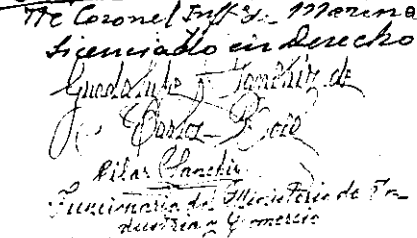 Tte Coronel Inff de Marina
Licenciado en Derecho
Guadalupe Sanchiz de
Carlos-Roca
Pilar Sanchiz
Funcionaria del Ministerio de In-
dustria y Comercio